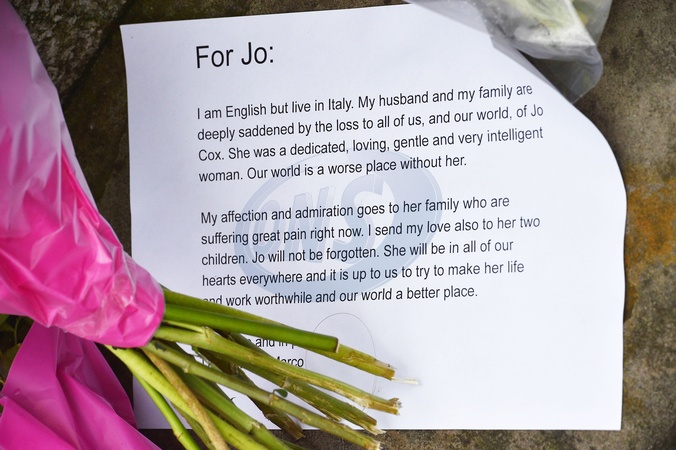 For Jo:
I am English but live in Italy. My husband and my family are
deeply saddened by the loss to all of us, and our world, of Jo
Cox. She was a dedicated, loving, gentle and very intelligent
woman. Our world is a worse place without her.
My affection and admiration goes to her family who are
suffering great pain right now. I send my love also to her two
children. Jo will not be forgotten. She will be in all of our
hearts everywhere and it is up to us to try to make her life
and work worthwhile and our world a better place.
and in
Marco